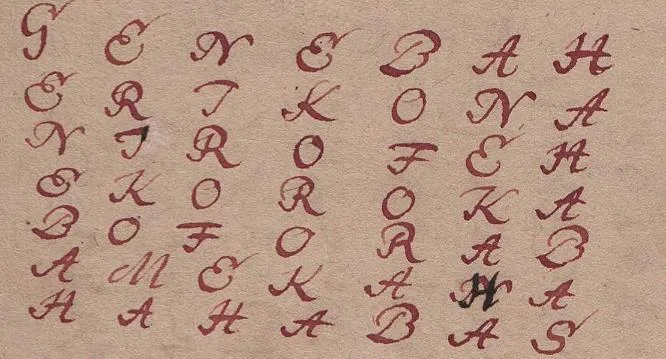 G E N E B A H
E R T K O N A
N T R O F E H
E K O R O K A
B O F O R A B
A M E K A H A
H A H A B A S